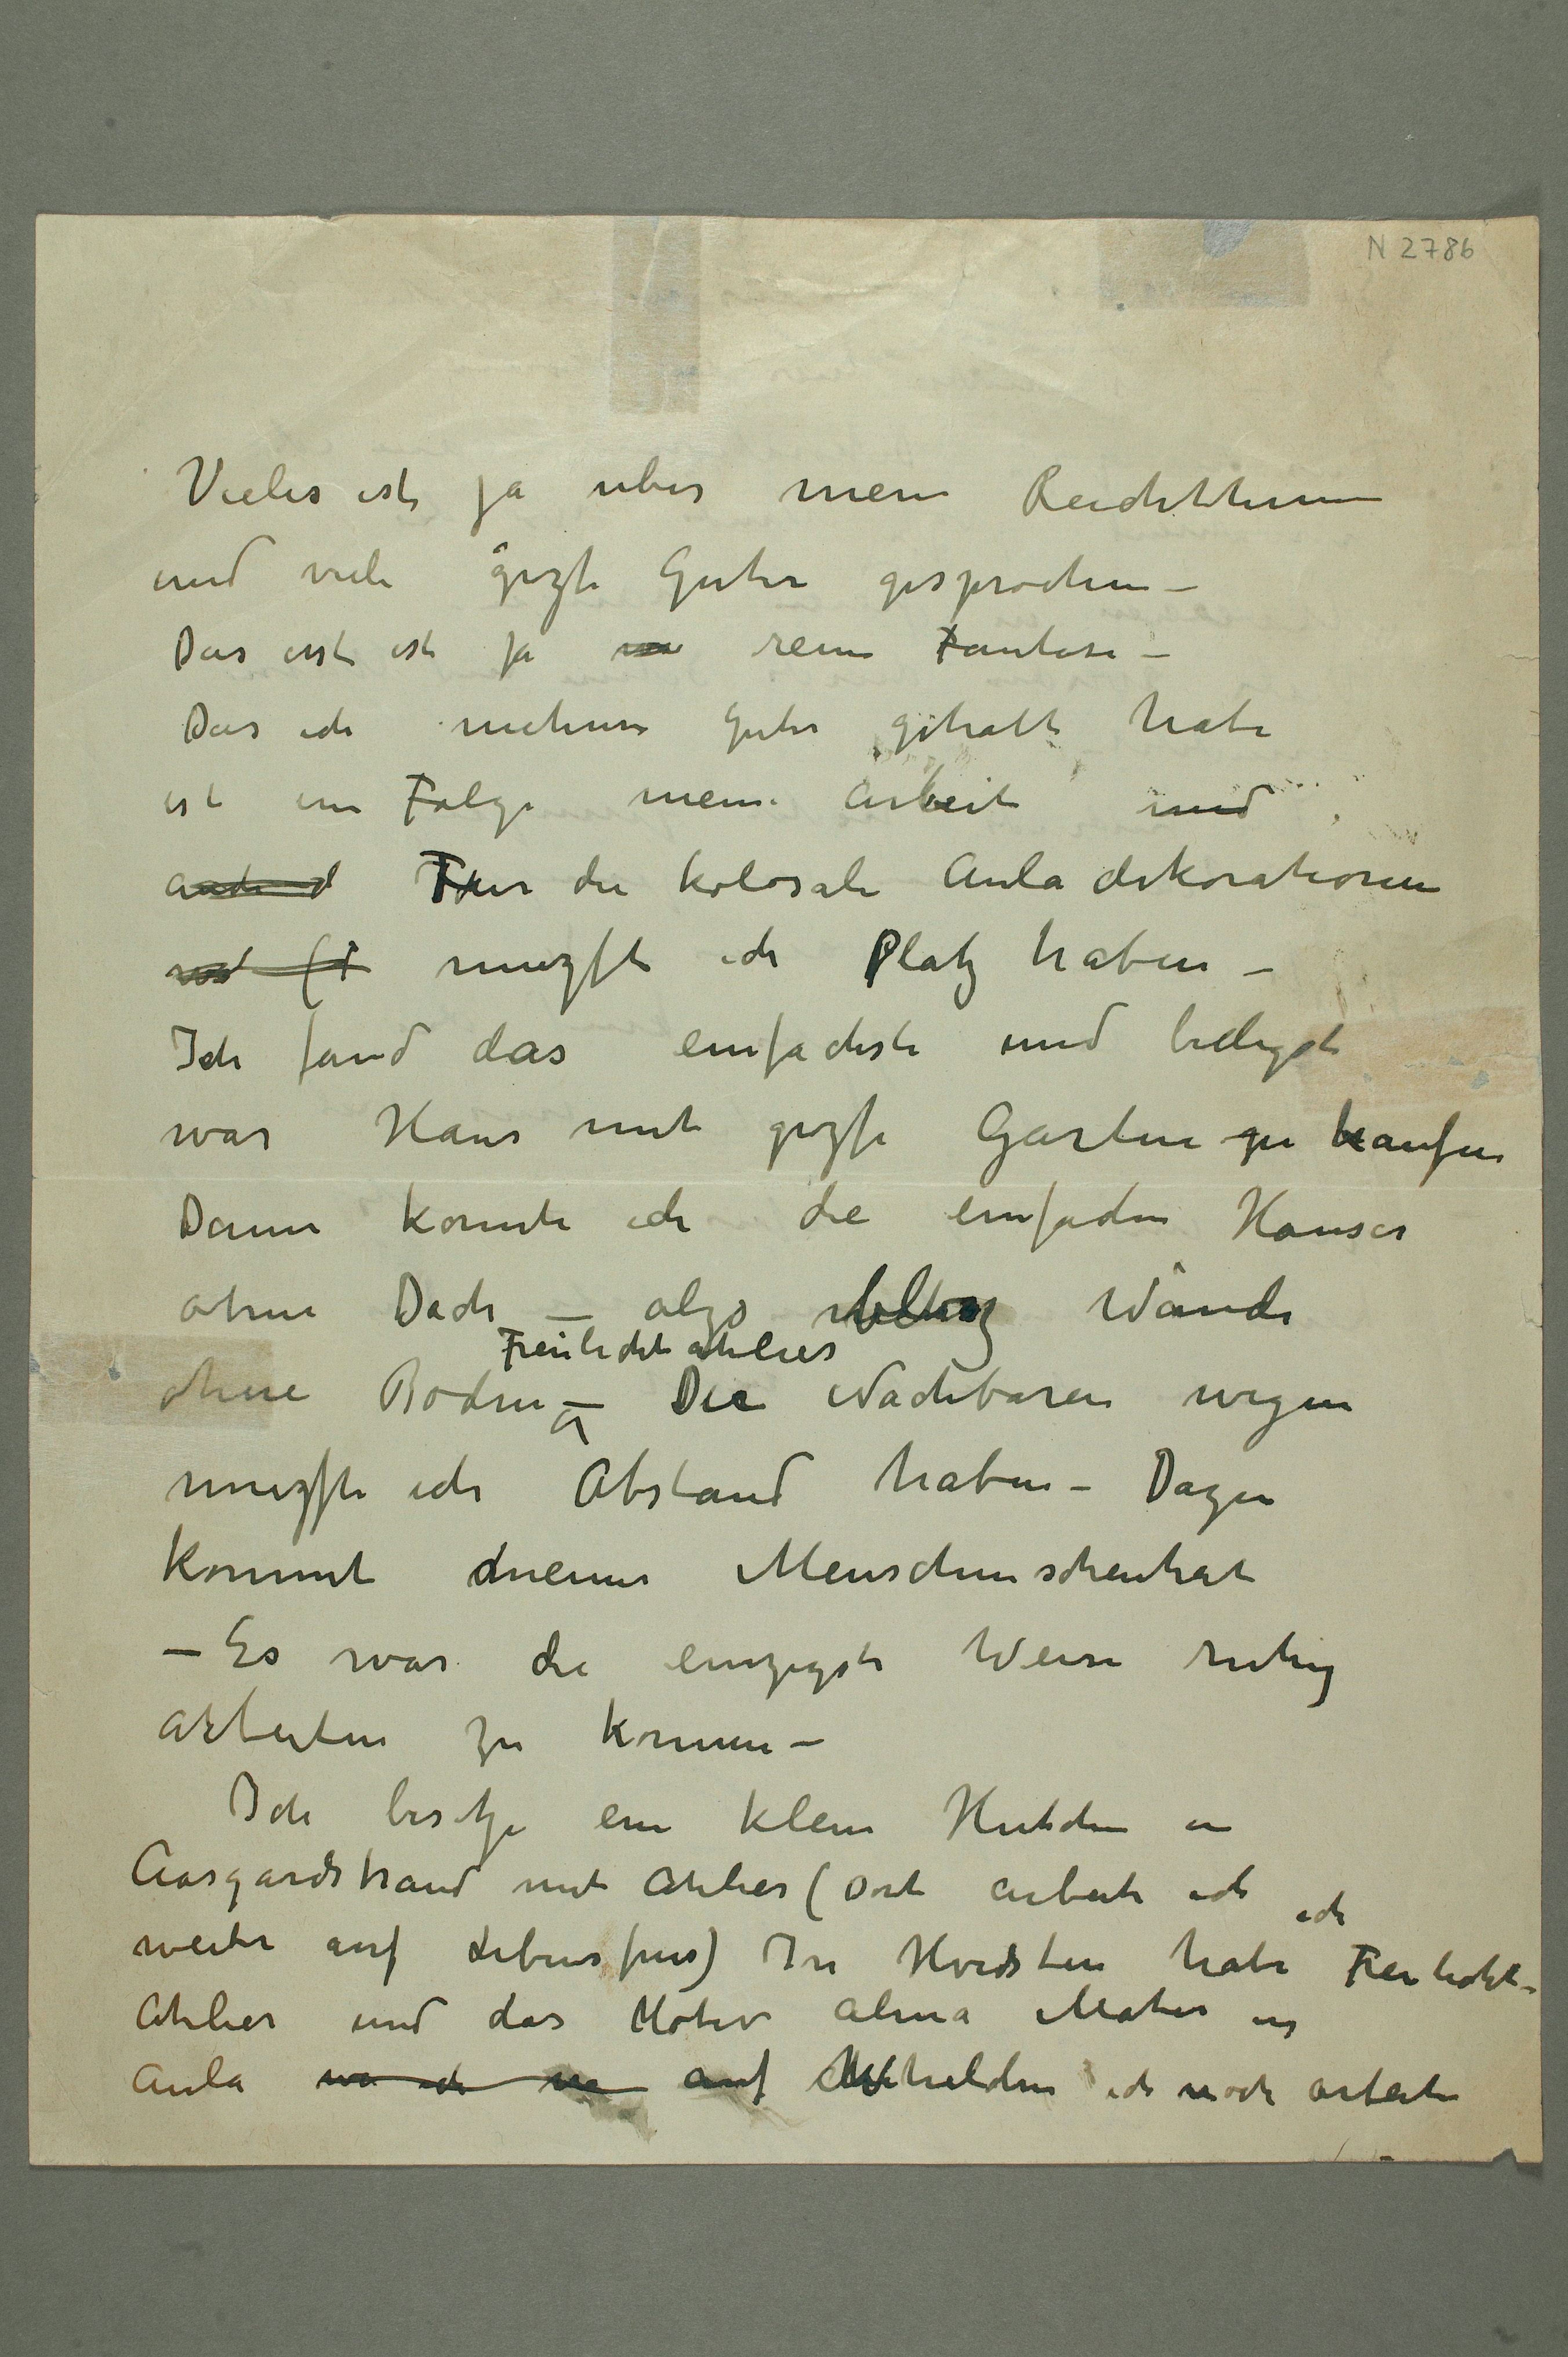 N 2786
Vieles ist ja uber mein Reichtthum
und viele Güter gesprochen –
Das erste ist ja reine Fantasi –
Das ich mehrere Güter gehabt habe
ist eine Folge meine Arbeit und
Fur die kolosale Aula dekorationen
muszte ich Platz haben –
Ich fand das einfachste und billigste
war Haus mit groszse Garten zu kaufen
Dann konnte ich die einfachen Hauser
ohne Dach – also Wände
Freilichtatelier
ohne Boden – Die Nachbaren wegen
muszte ich Abstand haben – Dazu
kommt meine Menschenscheuhat
– Es war die einzigste Weise ruhig
arbeiten zu konnen –
Ich besitze ein klein Hütchen in
Aasgardstrand mit Atelier (dort arbeite ich
ich
weiter auf Lebensfries) In Hvidsten habe Freilicht-
Atelier und das Motiv Alma Mater in
Aula auf ich noch arbeite